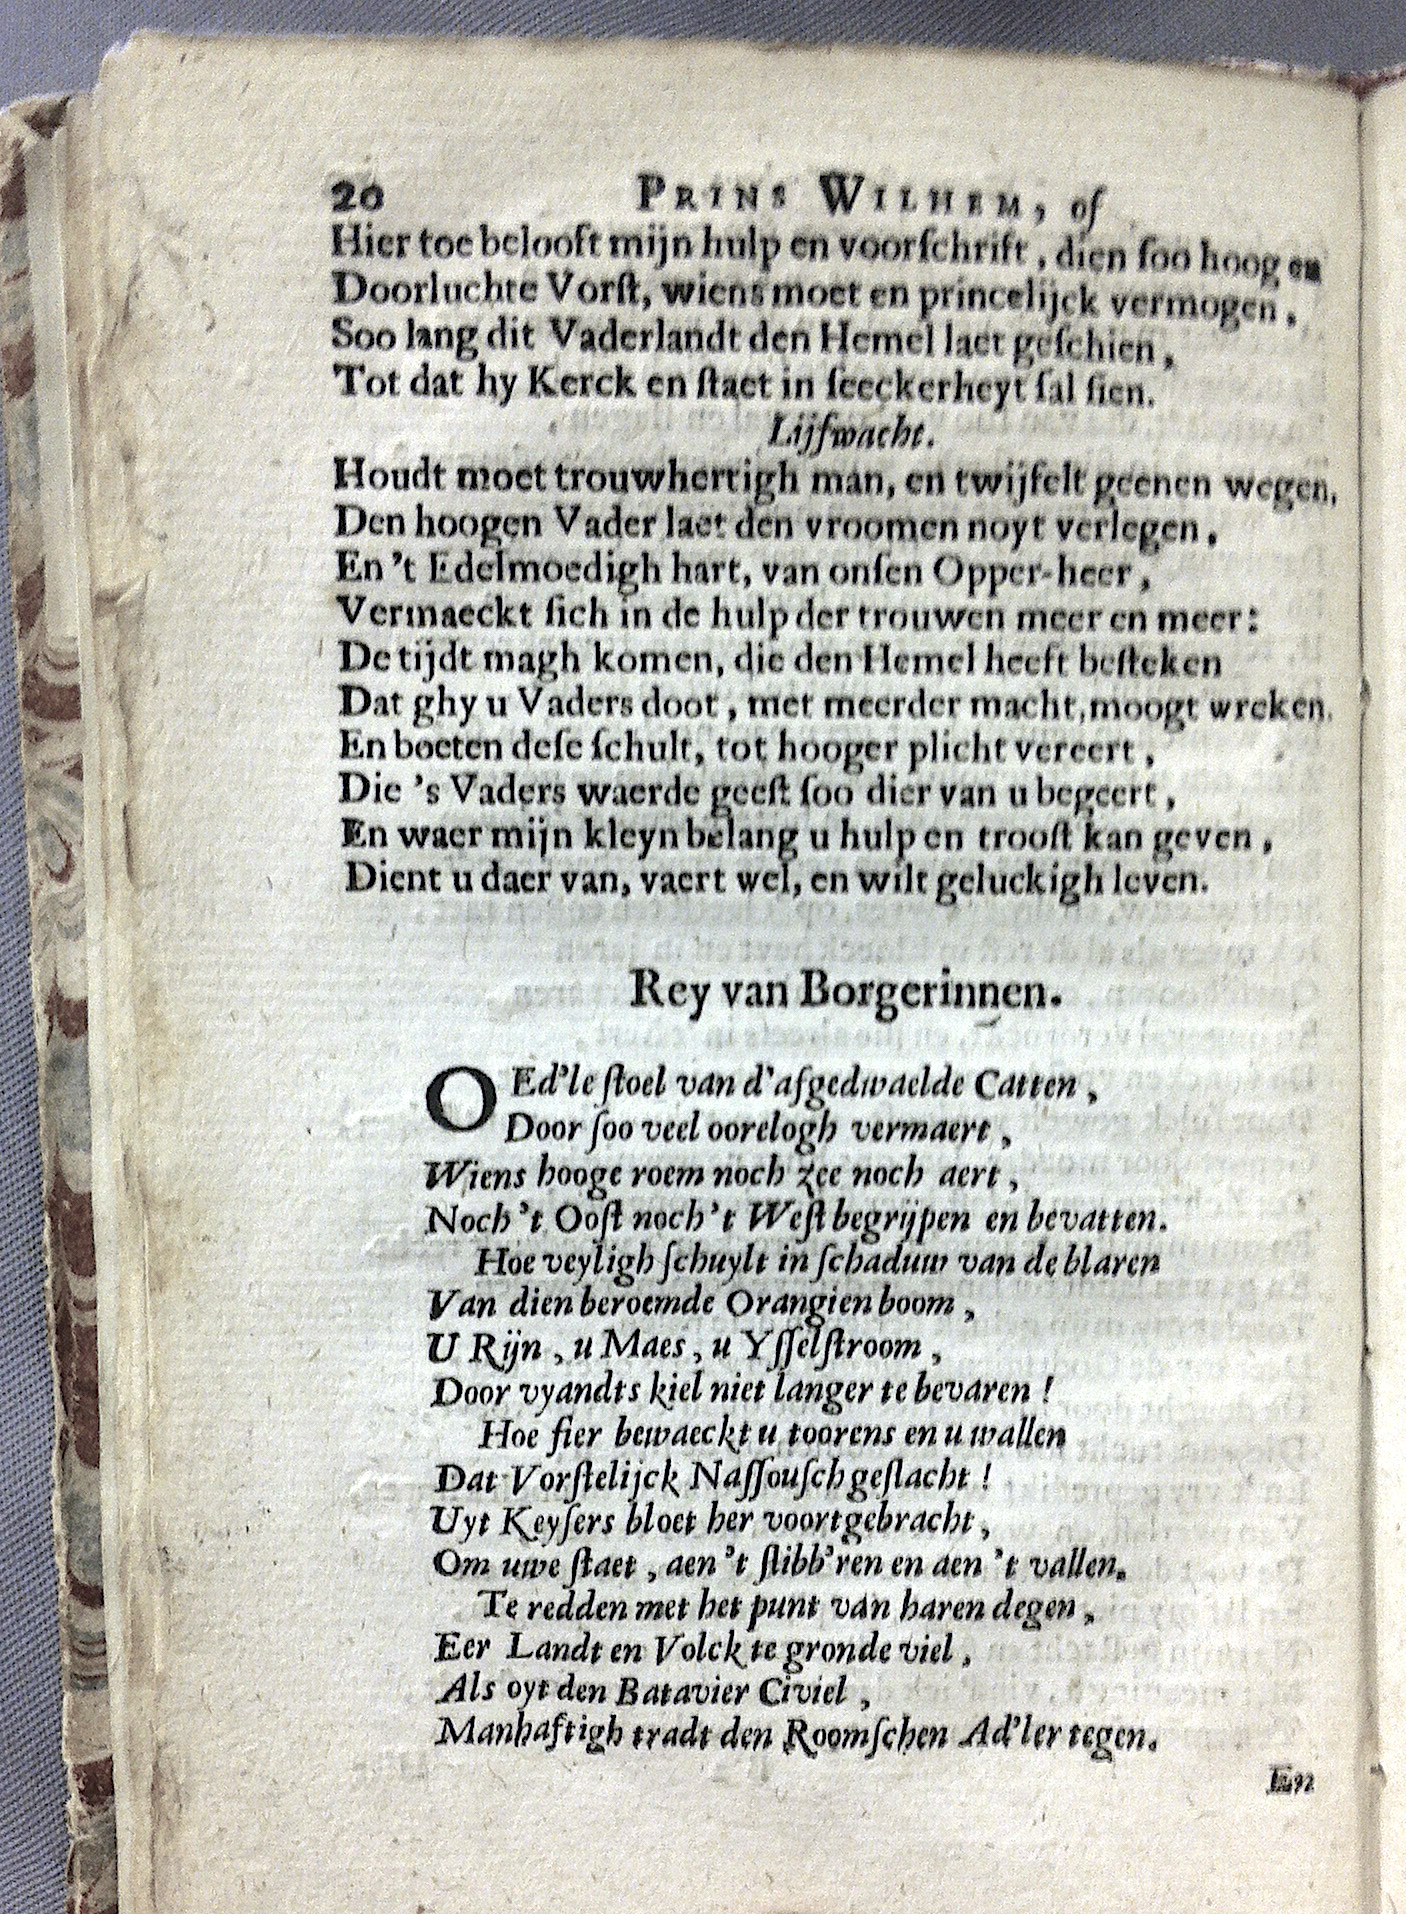 20 PRINS WILHEM, of
Hier toe belooft mijn hulp en voorſchrift, dien ſoo hoog en
Doorluchte Vorſt, wiens moet en princelijck vermogen,
Soo lang dit Vaderlandt den Hemel laet geſchien,
Tot dat hy Kerck en ſtaet in ſeeckerheyt ſal ſien.
Lijfwacht.
Houdt moet trouwhertigh man, en twijfelt geenen wegen,
Den hoogen Vader laet den vroomen noyt verlegen,
En 't Edelmoedigh hart, van onſen Opper-heer,
Vermaeckt ſich in de hulp der trouwen meer en meer:
De tijdt magh komen, die den Hemel heeft beſteken
Dat ghy u Vaders doot, met meerder macht, moogt wreken.
En boeten deſe ſchult, tot hooger plicht vereert,
Die 's Vaders waerde geeſt ſoo dier van u begeert,
En waer mijn kleyn belang u hulp en trooſt kan geven,
Dient u daer van, vaert wel, en wilt geluckigh leven.
Rey van Borgerinnen.
O Ed'le ſtoel van d'afgedwaelde Catten,
Door ſoo veel oorelogh vermaert,
Wiens hooge roem noch zee noch aert,
Noch 't Ooſt noch 't Weſt begrijpen en bevatten.
Hoe veyligh ſchuylt in ſchaduw van de blaren
Van dien beroemde Orangien boom,
U Rijn, u Maes, u Yſſelſtroom,
Door vyandts kiel niet langer te bevaren!
Hoe fier bewaeckt u toorens en u wallen
Dat Vorſtelijck Naſſouſch geſlacht!
Uyt Keyſers bloet her voortgebracht,
Om uwe ſtaet, aen 't ſlibb'ren en aen 't vallen.
Te redden met het punt van haren degen,
Eer Landt en Volck te gronde viel,
Als oyt den Batavier Civiel,
Manhaftigh tradt den Roomſchen Ad'ler tegen.
En